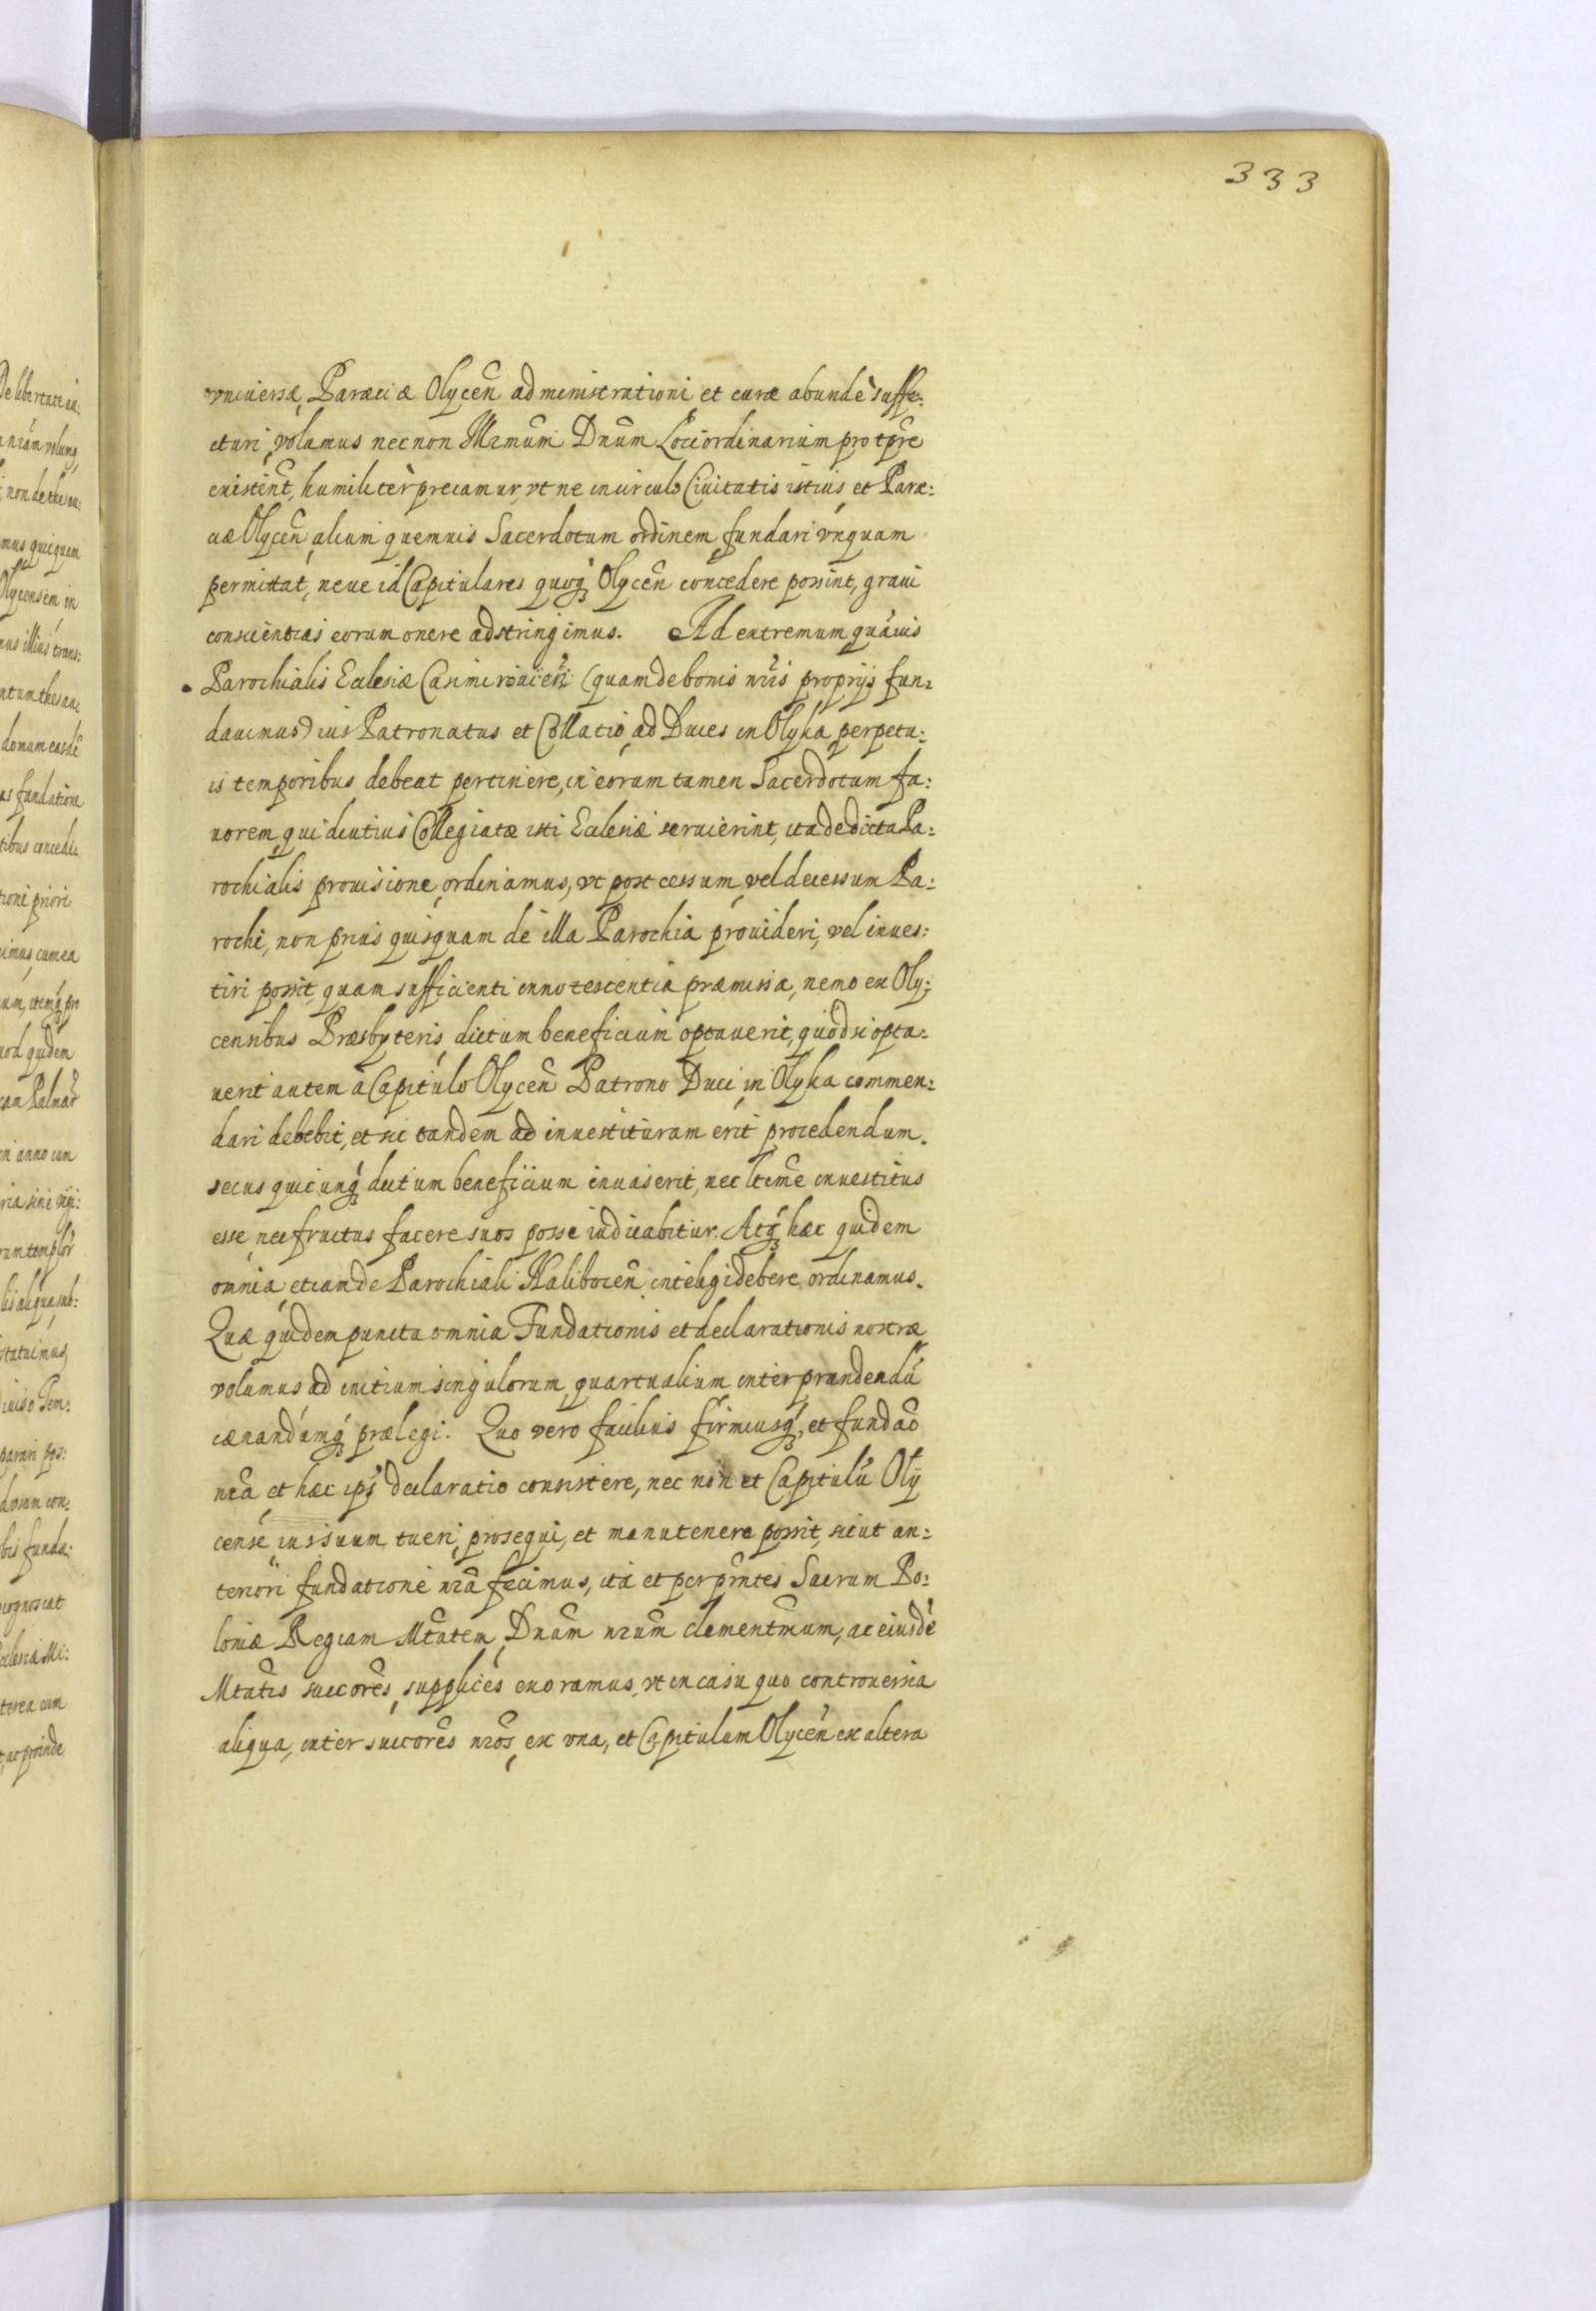 333
vniuersæ Paræciæ Olycen̄ administrationi et curæ abundè suffe:
cturi, volumus nec non Illrmum Dnum Loci ordinarium pro tpre
existent̄, humiliter precamur, vt ne in circulo Ciuitatis istius, et Paræ:
ciæ Olycen̄ alium quemuis Sacerdotum ordinem, fundari vnquam
permittat, neue id Capitulares quoq́ꝫ Olycen̄ concedere possint, graui
conscientias eorum onere adstringimus. Ad extremum quáuis
Parochialis Ecclesiæ Casimirouicen̄ (quam de bonis nr̄is proprijs fun:
dauimus) ius Patronatus et Collatio, ad Duces in Olyka perpetu:
is temporibus debeat pertinere, in eorum tamen Sacerdotum fa:
uorem, qui diutius Collegiatæ isti Ecclesiæ seruierint, ita de dicta Pa:
rochialis prouisione, ordinamus, vt post cessum, vel decessum Pa:
rochi, non prius quisquam de illa Parochia prouideri, vel inues:
tiri possit, quam sufficienti innotescentia præmissa, nemo ex Oly:
censibus Præsbyteris, dictum beneficium optauerit, quod si opta:
uerit autem à Capitulo Olycen̄ Patrono Duci in Olyka commen:
dari debebit, et sic tandem ad inuestituram erit procedendum.
secus quicunq́ꝫ dictum beneficium inuaserit, nec ltime inuestitus
esse, nec fructus facere suos posse iudicabitur. Atq́ꝫ hæc quidem
omnia, etiam de Parochiali Nalibocen̄ inteligi debere ordinamus.
Quæ quidem puncta omnia Fundationis et declarationis nostræ
volumus ad initium singulorum, quartualium inter prandendú
cænandúmq́ꝫ prælegi. Quo vero facilius firmiusq́ꝫ, et fundac̄o
nr̄a et hæc ips̄ declaratio consistere, nec non et Capitulú Oly
cense, ius suum tueri, prosequi, et manutenere possit, sicut an:
teriori fundatione nr̄a fecimus, ita et per pn̄tes Sacram Po:
loniæ Regiam Mtatem, Dnum nr̄um clementmum, ac eiusdé
Mtatis succores, supplices exoramus, vt in casu quo controuersia
aliqua, inter succores nr̄os, ex vna, et Capitulum Olycen̄ ex altera